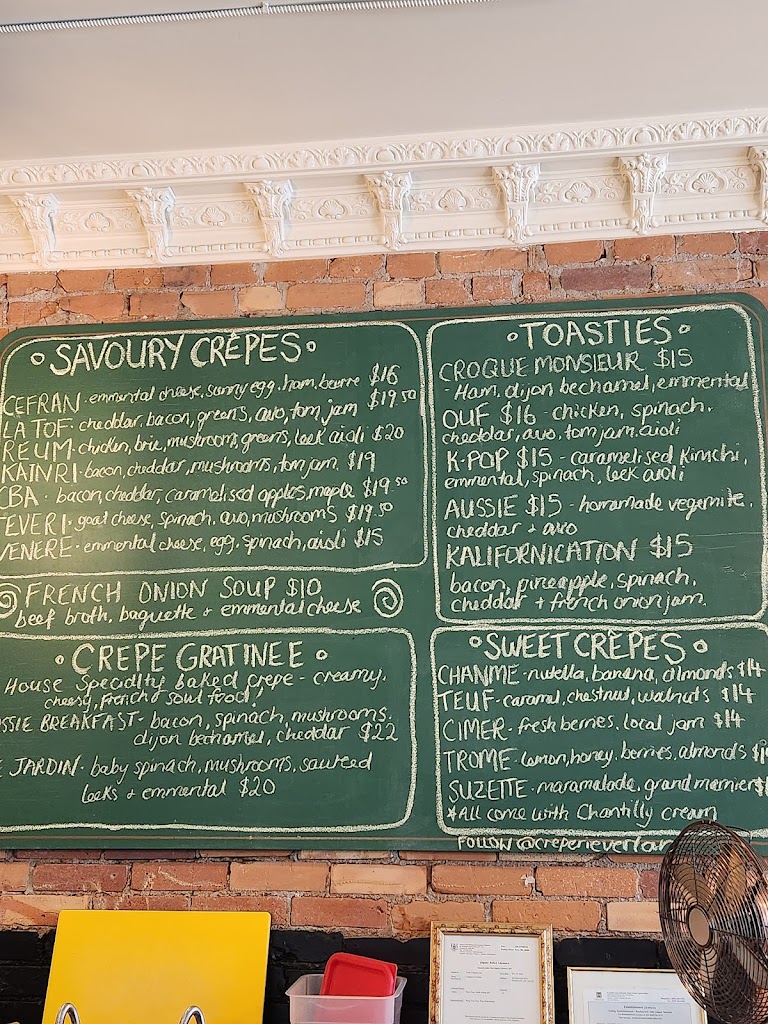 SAVOURY CRÊPES
CEFRAN · emmental cheese, sunny egg, ham, beurre $16
LA TOF · cheddar, bacon, greens, avo, tom jam $19.50
REUM · chicken, brie, mushroom, greens, leek aioli $20
KAINRI · bacon, cheddar, mushrooms, tom jam. $19
CBA · bacon, cheddar, caramelised apples, maple $19.50
TEVERI · goat cheese, spinach, avo, mushrooms $19.50
VENERE · emmental cheese, egg, spinach, aioli $15
FRENCH ONION SOUP $10
beef broth, baguette + emmental cheese
CREPE GRATINEE
House Speciality baked crepe - creamy,
cheesy, french soul food!
SSIE BREAKFAST - bacon, spinach, mushrooms,
dijon bechamel, cheddar $22
JARDIN · baby spinach, mushrooms, sauteed
leeks + emmental $20
TOASTIES
CROQUE MONSIEUR $15
- Ham, dijon bechamel, emmental
OUF $16 - chicken, spinach,
cheddar, avo, tom jam, aioli
K-POP $15 - caramelised kimchi,
emmental, spinach, leek aioli
AUSSIE $15 - homamade vegemite,
cheddar + avo
KALIFORNICATION $15
bacon, pineapple, spinach,
cheddar + french onion jam.
SWEET CRÊPES
CHANME - nutella, banana, almonds $14
TEUF - caramel, chestnut, walnuts $14
CIMER - fresh berries, local jam $14
TROME - lemon, honey, berries, almonds
SUZETTE - maramalade, grand marnier
*All come with Chantilly cream
FOLLOW @creperieneverlan